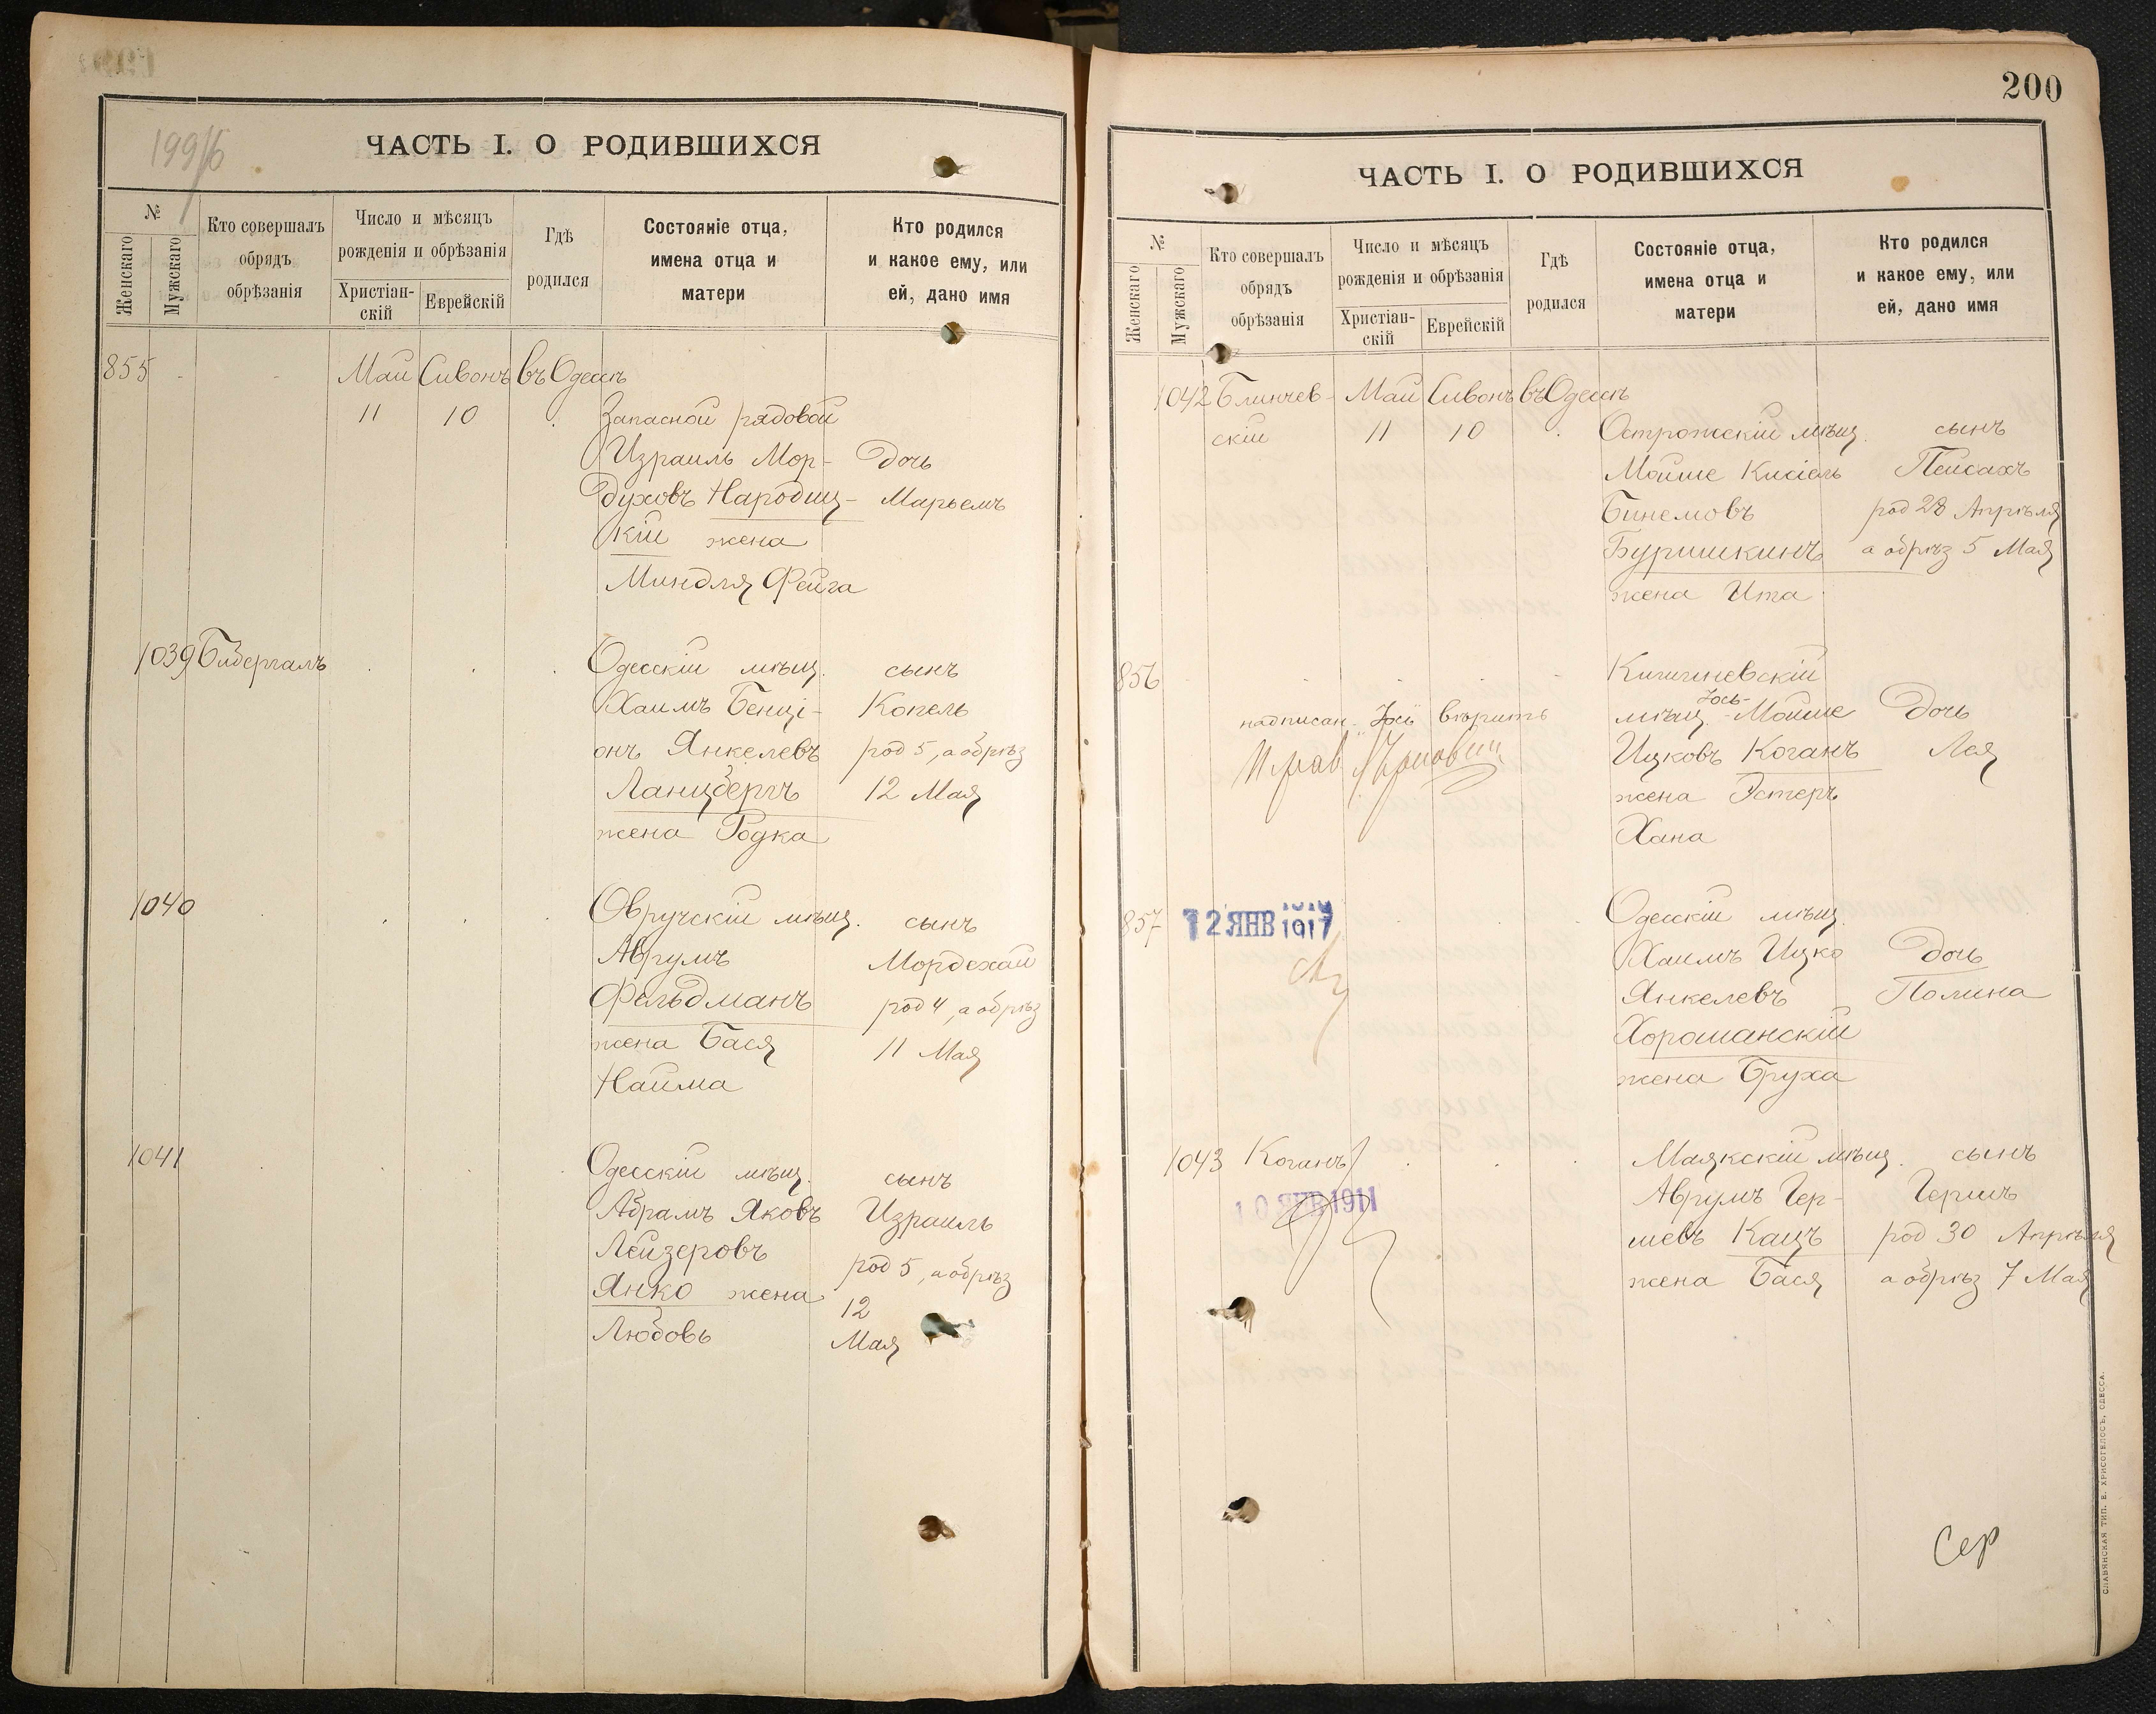 199/б
ЧАСТЬ I. О РОДИВШИХСЯ
№
Женскаго
Мужскаго
Кто совершалъ
обрядъ
обрѣзанія
Число и мѣсяцъ
рожденія и обрѣзанія
Христіан-
скій
Еврейскій
Гдѣ
родился
Состояніе отца,
имена отца и
матери
Кто родился
и какое ему, или
ей, дано имя
855 Май Сивонъ въ Одессѣ
11 10 Запасной рядовой
Израиль Мор- Дочь
духовъ Народиц- Марьемъ
кій жена
Миндля Фейга
1039 Бибергалъ Одесскій мѣщ. сынъ
Хаимъ Бенці- Копель
онъ Янкелевъ род 5, а обрѣз
Ланцбергъ 12 Мая
жена Родка
1040 Овручскій мѣщ. сынъ
Аврумъ Мордехай
Фельдманъ род 4, а обрѣз
жена Бася 11 Мая
Найма
1041 Одесскій мѣщ. сынъ
Абрамъ Яковъ Израиль
Лейзеровъ род 5, а обрѣз
Янко жена 12
Любовь Мая
200
ЧАСТЬ I. О РОДИВШИХСЯ
№
Женскаго
Мужскаго
Кто совершалъ
обрядъ
обрѣзанія
Число и мѣсяцъ
рожденія и обрѣзанія
Христіан-
скій
Еврейскій
Гдѣ
родился
Состояніе отца,
имена отца и
матери
Кто родился
и какое ему, или
ей, дано имя
1042 Блинчев- Май Сивонъ въ Одессѣ
скій 11 10 Острожскій мѣщ. сынъ
Мойше Кисіель Пейсахъ
Бинемовъ род 28 Апрѣля
Буришкинъ а обрѣз 5 Мая
жена Ита
856 Кишиневскій
Іось-
надписан. "Іось" вѣрить мѣщ. Мойше Дочь
Ицковъ Коганъ Лея
жена Эстеръ
Хана
857 12 ЯНВ 1917 Одесскій мѣщ.
Хаимъ Ицко Дочь
Янкелевъ Полина
Хорошанскій
жена Бруха
1043 Коганъ Маякскій мѣщ. сынъ
10 ЯНВ 1911 Аврумъ Гер- Гершъ
шевъ Кацъ род 30 Апрѣля
жена Бася а обрѣз 7 Мая
СЛАВЯНСКАЯ ТИП. Е. ХРИСОГЕЛОСЪ, ОДЕССА.